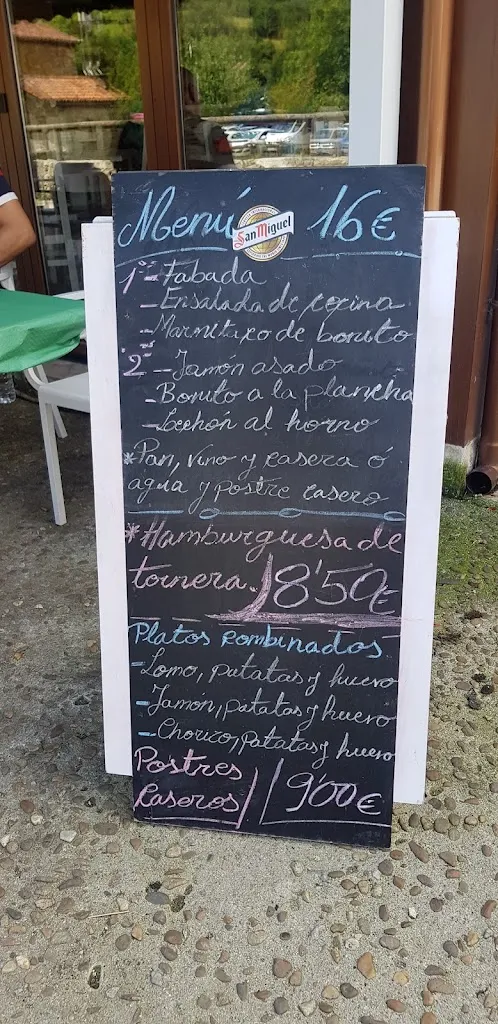 Menú San Miguel 16€
1º - Fabada
- Ensalada de cocina
- Marmitaxo de bonito
2º - Jamón asado
- Bonito a la plancha
- Lechón al horno
*Pan, vino y casera ó
agua y postre casero
*Hamburguesa de
ternera. 8'50€
Platos combinados
- Lomo, patatas y huevo
- Jamón, patatas y huevo
- Chorizo, patatas y huevo
Postres
caseros 9'00€